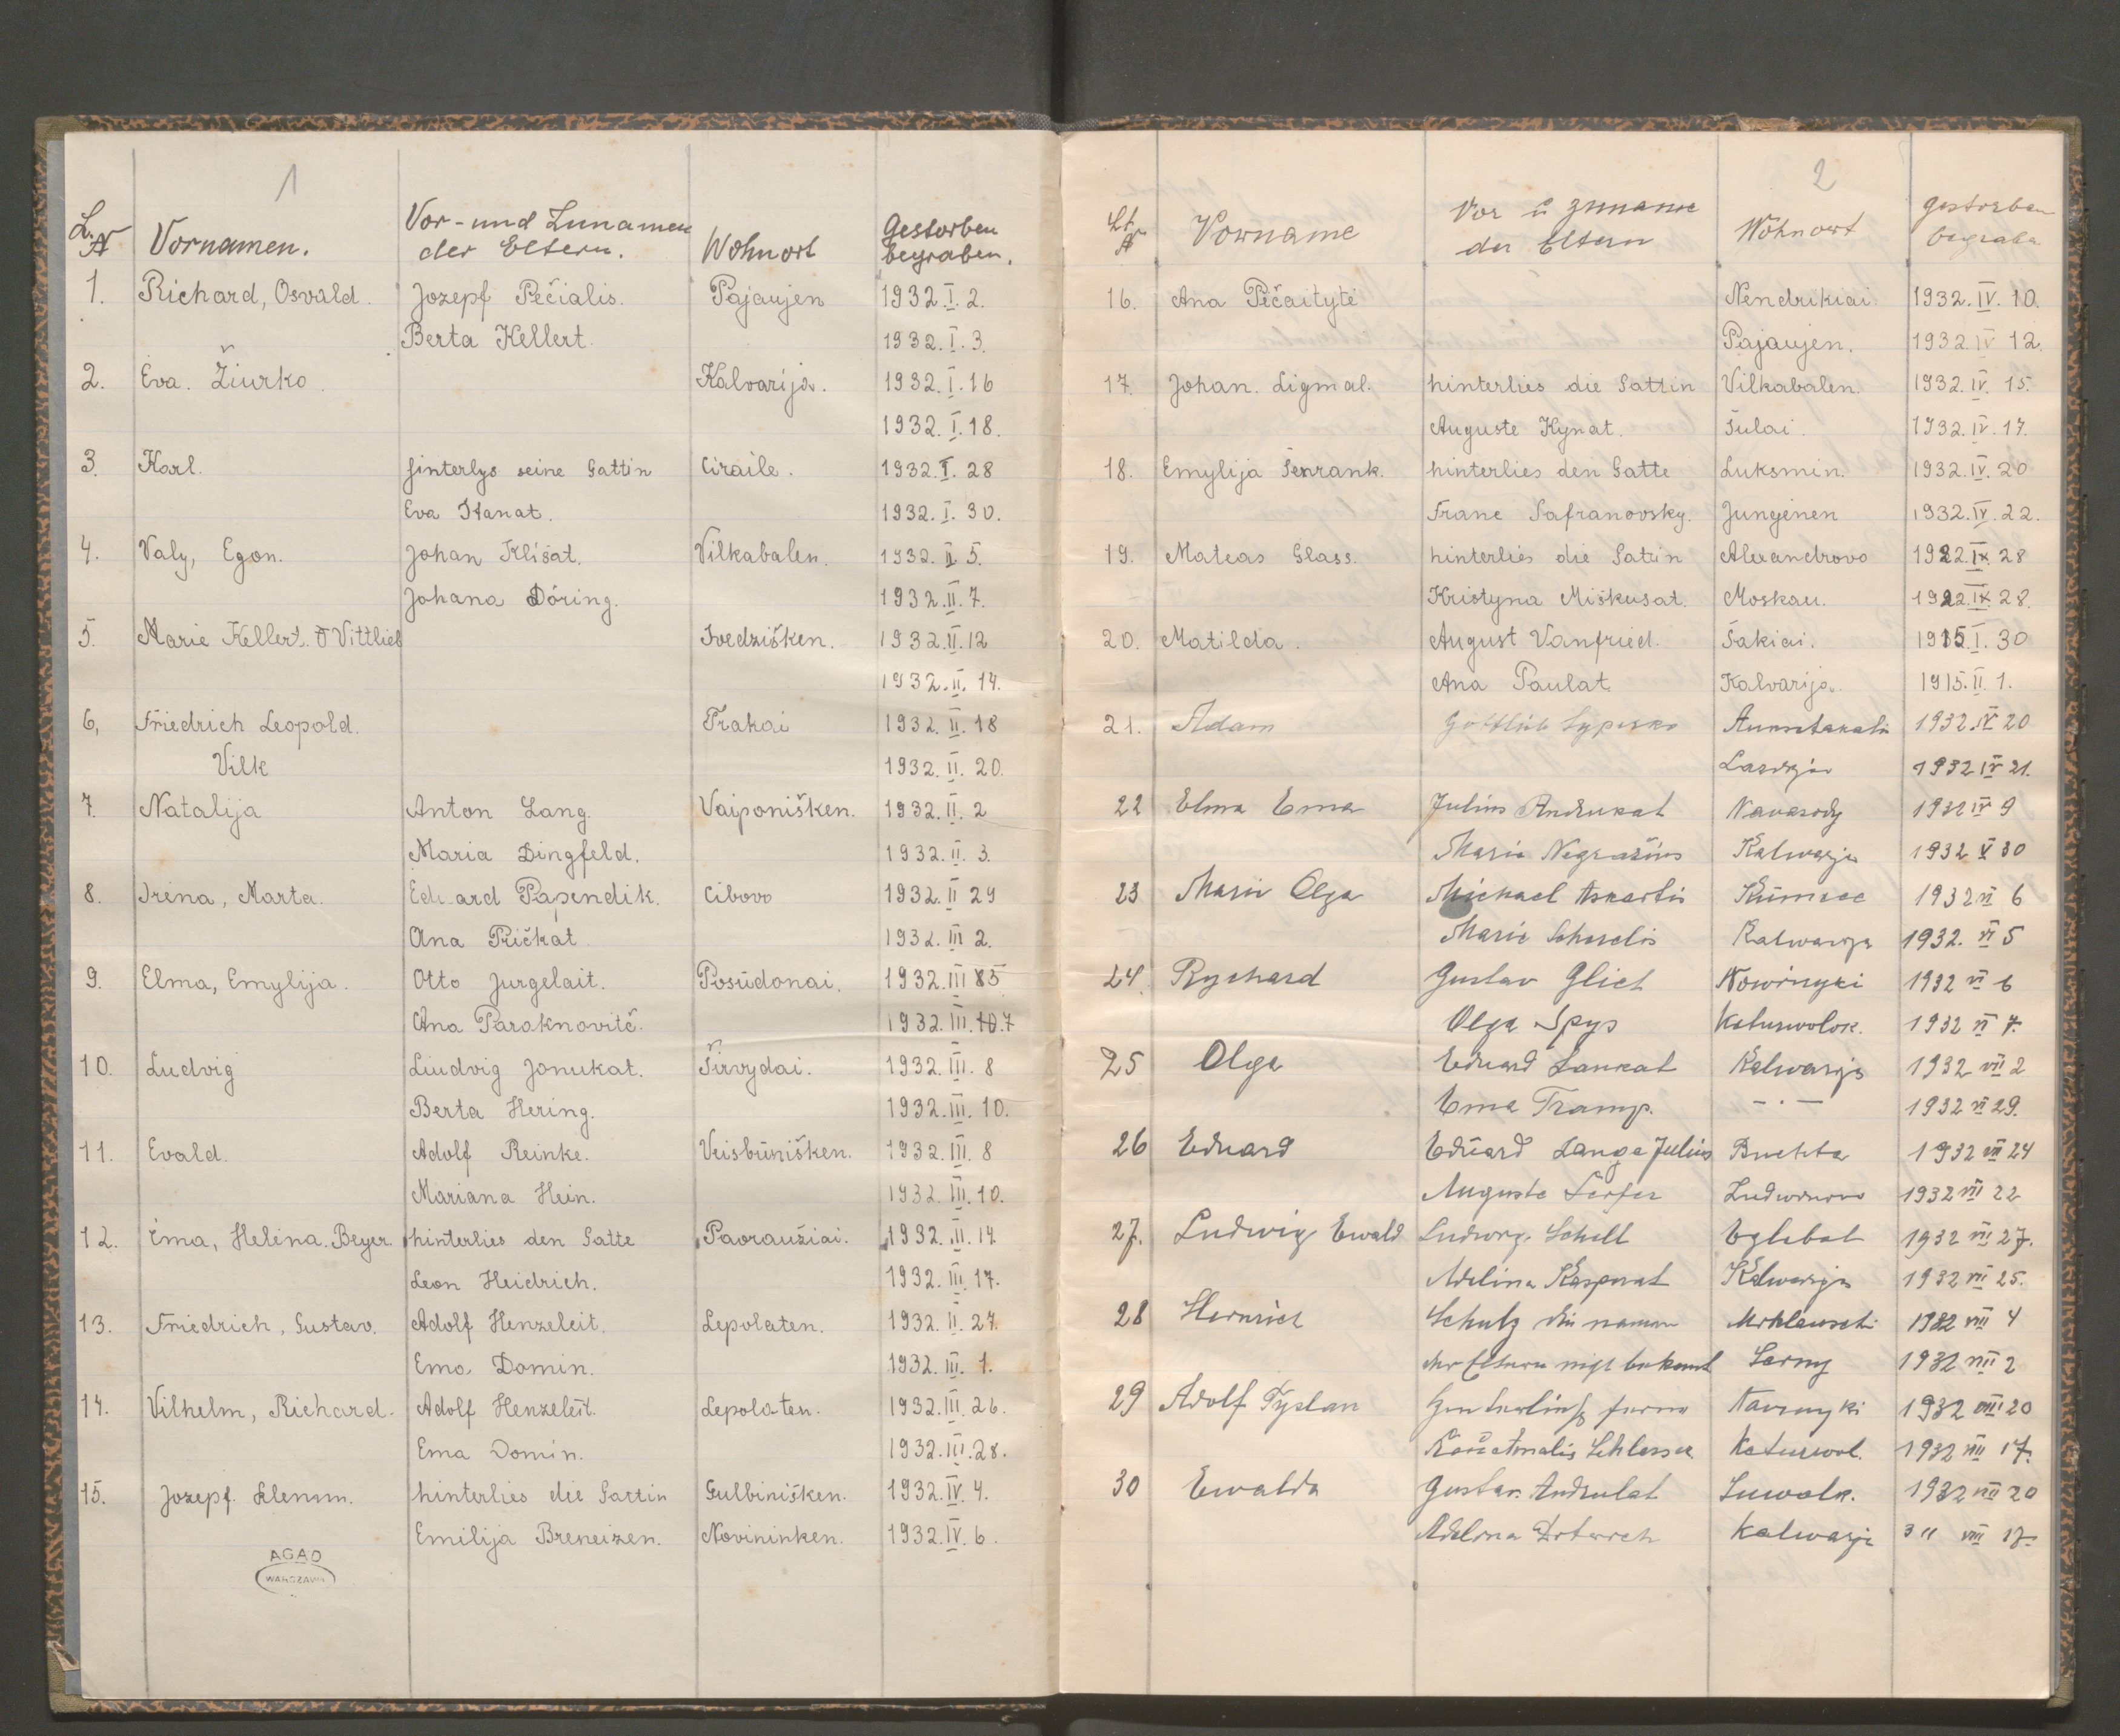 1
L. N Vornamen. Vor-und Zunamen der Eltern. Wohnort Gestorben begraben.
1. Richard, Osvald. Jozepf Pečialis. Pajaujen 1932.I.2.
Berta Kellert. 1932.I.3.
2. Eva. Žiurko. Kalvarija. 1932.I.16
1932.I.18.
3. Karl. hinterlys seine Gattin Ciraile. 1932.I.28
Eva Itanat. 1932.I.30.
4. Valy, Egon. Johan Klišat. Vilkabalen. 1932.II.5.
Johana Döring. 1932.II.7.
5. Marie Kellert. Vittlieb 1932.II.12
1932.II.14.
6, Friedrich Leopold. Trakai 1932.II.18
Vilk 1932.II.20.
7. Natalija Anton Lang. Vaiponišken. 1932.II.2
Maria Dingfeld. 1932.II.3.
8. Irena, Marta. Eduard Papendik. Cibovo 1932.II 29
Ana Pričkat. 1932.III 2.
9. Elma, Emylija. Otto Jurgelait. Posūdonai. 1932.III 5
Ana Paraknovitč. 1932.III.7
10. Ludvig Liudvig Jonukat. Širvydai. 1932.III.8
Berta Hering. 1932.III.10.
11. Evald. Adolf Reinke. Veisbūnišken. 1932.III.8
Mariana Hein. 1932.III.10.
12. Ema, Helena. Beyer. hinterlies den Gatte Paoraužiai. 1932.III.14
Leon Heidrich. 1932.III.17.
13. Friedrich, Gustav. Adolf Henzeleit. Lepolaten. 1932.II.27.
Ema Domin. 1932.III.1.
14. Vilhelm, Richard. Adolf Henzeleit. Lepolaten. 1932.III.26.
Ema Domin. 1932.III.28.
15. Jozepf. Klemm. hinterlies die Gattin Gulbinišken. 1932.IV.4.
Emilija Breneizen. Novininken. 1932.IV.6.
AGAD
WARSZAWA
2
Lt. N Vorname Vor u Zuname der Eltern Wohnort gestorben begraben
16. Ana Pečaitytė Nendrikiai. 1932.IV.10.
Pajaujen. 1932.IV 12.
17. Johan. Ligmal. hinterlies die Gattin Vilkabalen. 1932.IV.15.
Auguste Kynat. Šulai. 1932.IV.17.
18. Emylija Šenrank. hinterlies den Gatte Luksmin. 1932.IV.20
Franc Safranovsky. Jungėnen 1932.IV.22.
19. Mateas Glass. hinterlies die Gattin Alexandrovo 1922.IX.28
Kristyna Miškusat. Moskau. 1922.IX 28.
20. Matilda. August Vanfried. Šakiai. 1915.I.30
Ana Paulat. Kalvarija. 1915.II.1.
21. Adam Gottlieb 1932.IV 20
1932 IV 21.
22 Elma Ema Julius Andrukat 1932 IV 9
Maria Kalwarja 1932 V 30
23 Marie Olga Michael 1932 VI 6
Marie Schuelis Kalwarja 1932. VI 5
24 Rychard Gustav Glich 1932 VI 6
Olga Spys Katuwolok. 1932 VI 7.
25 Olga Eduard Lankat Kalwarja 1932 VII 2
Ema Tramp. – . – 1932 VI 29.
26 Eduard Eduard Lange Julius Buchta 1932 VII 24
Auguste Serfer 1932 VII 22
27. Ludwig Ewald Ludwig. Schell Eglabal 1932 VII 27.
Adelina Kaspurat Kalwarja 1932 VII 25.
28 Heinrich Schulz die namen 1932 VIII 4
der Eltern nigt bekannt Serny 1932 VIII 2
29 Adolf Tyslan 1932 VIII 20
Schlosser Katuwol. 1932 VIII 17.
30 Ewalda Gustav. Andrulat Suwalk. 1932 VIII 20
Adelina Kalwarja 3" VIII 17.